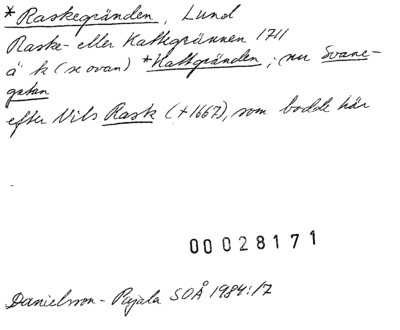 * Raskegränden, Lund
Raske- eller Kattegrännen 1711
ä k (se ovan) *Kattgränden; nu Svane-
gatan
efter Nils Rask (+1667), som bodde här
00028171
Danielsson - Pajala SOÅ 1984:17